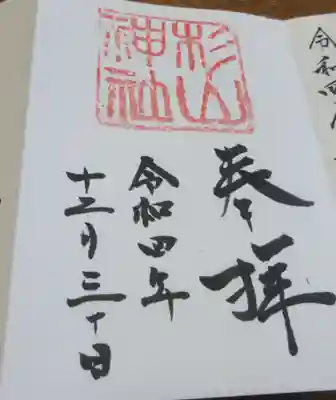 令和四
杉山
神社
奉拝
令和四年
十二月三十日